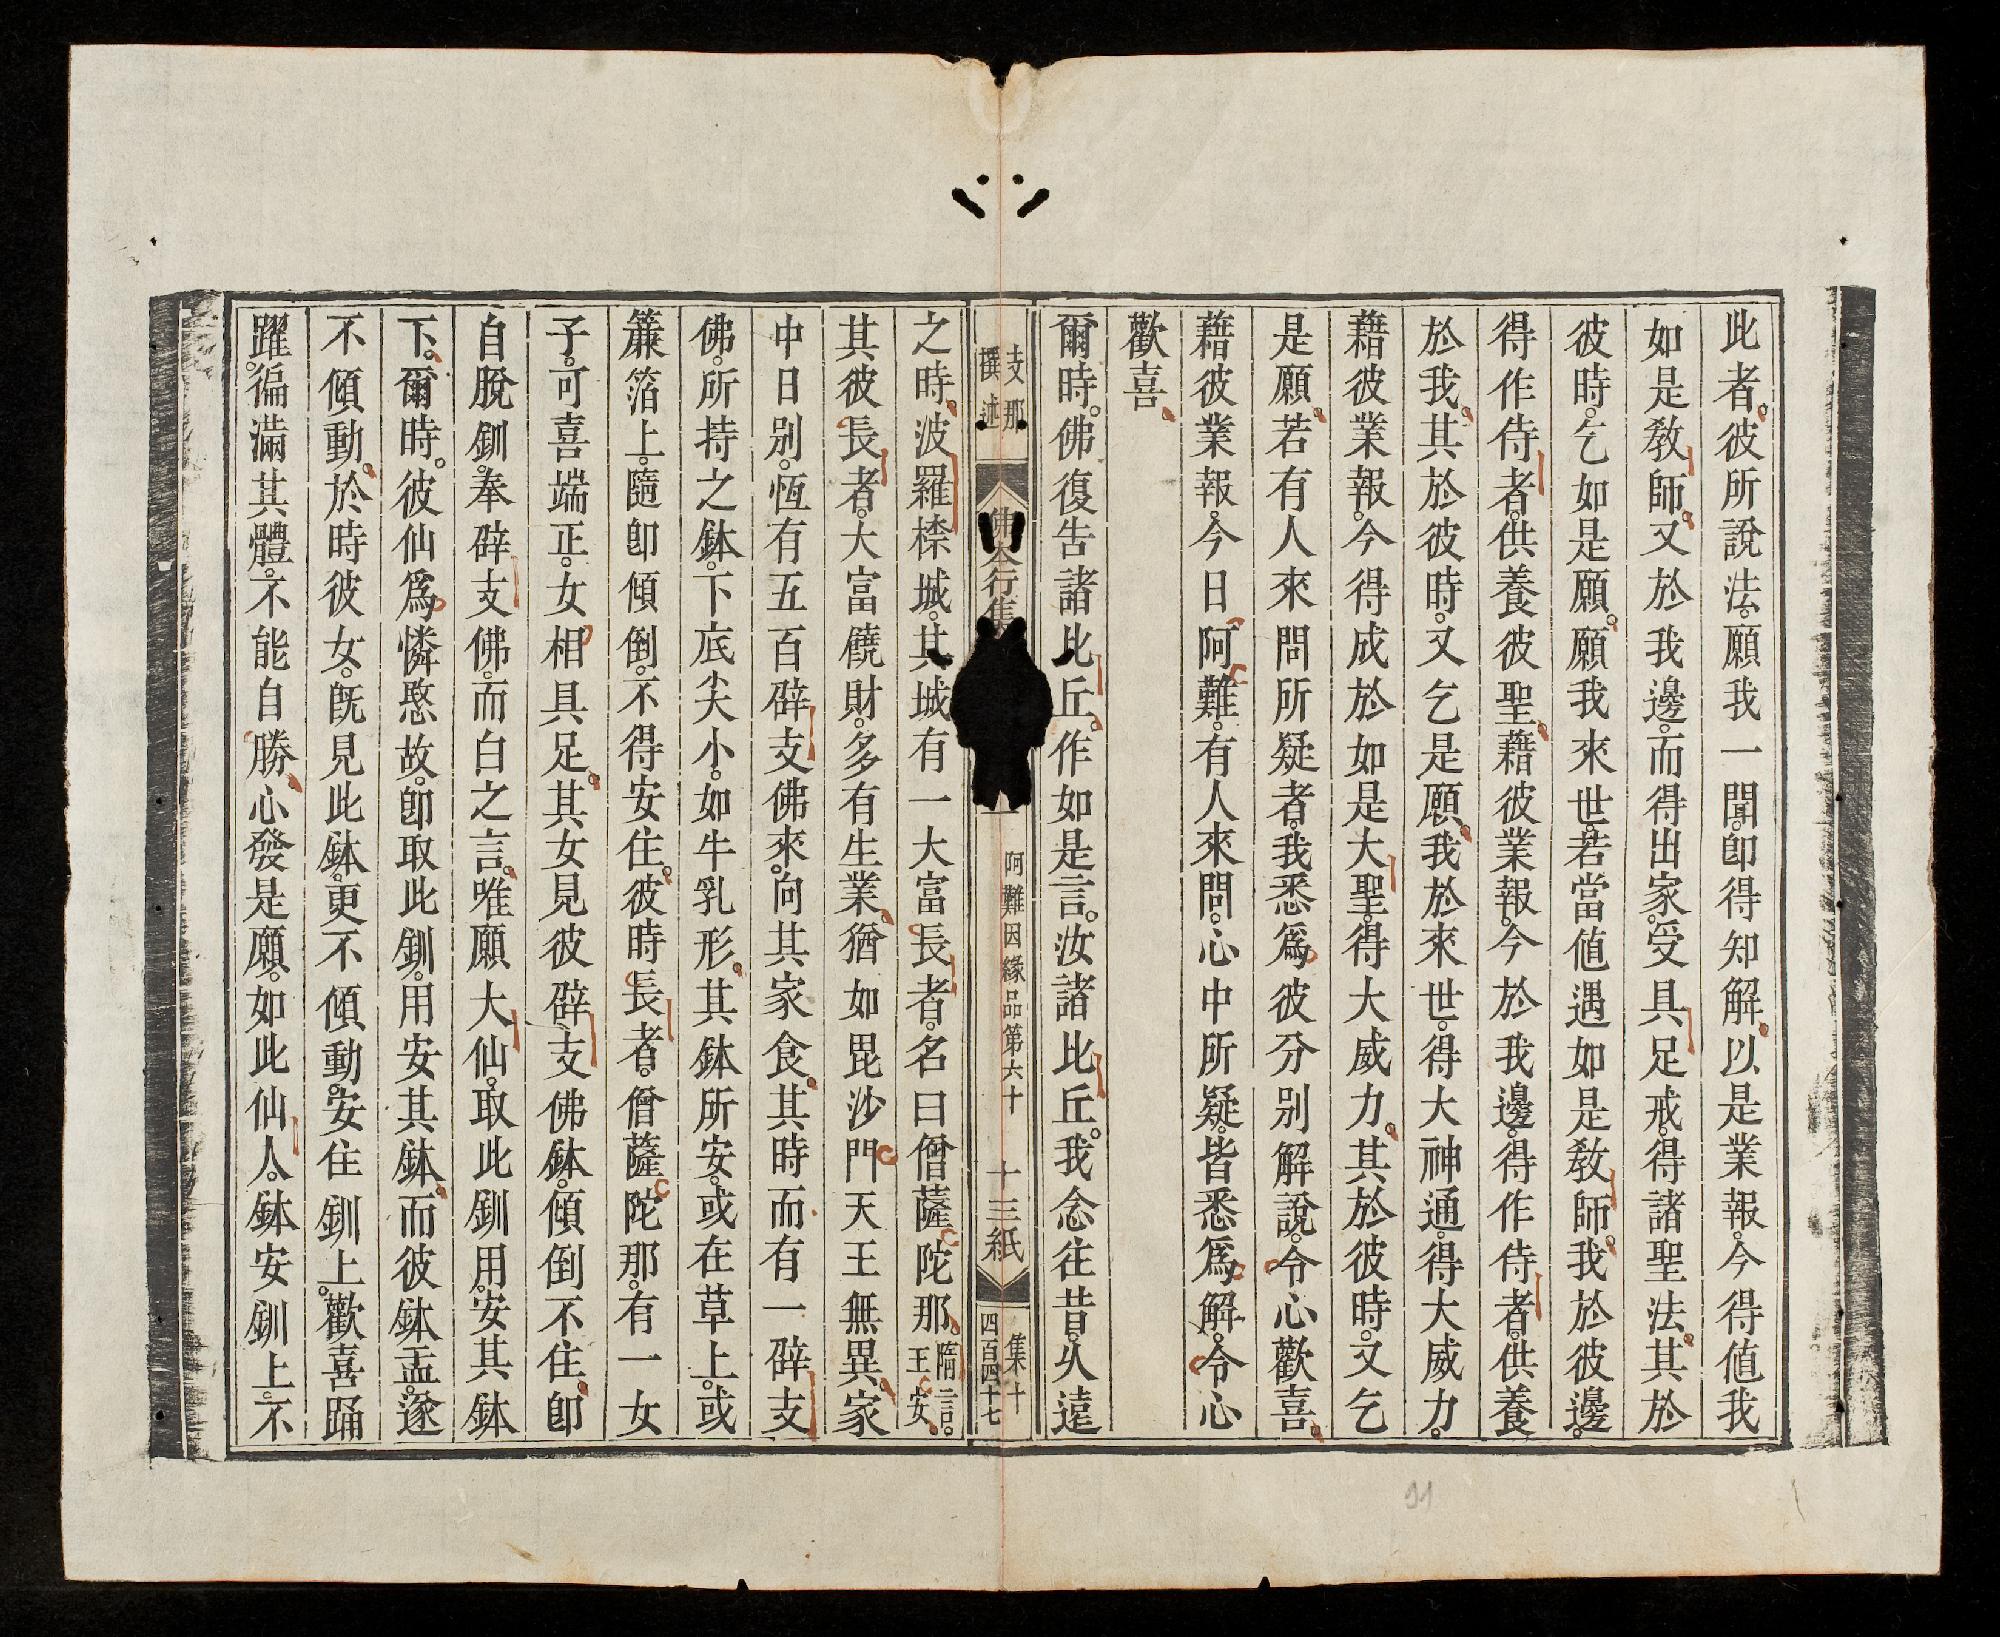 此者。彼所說法。願我一聞。卽得知解。以是業報。今得値我
如是敎師。又於我邊。而得出家。受具足戒。得諸聖法。其於
彼時。乞如是願。願我來世。若當値遇如是敎師。我於彼邊。
得作侍者。供養彼聖。藉彼業報。今於我邊。得作侍者。供養
於我。其於彼時。又乞是願。我於來世。得大神通。得大威力。
藉彼業報。今得成於如是大聖。得大威力。其於彼時。又乞
是願。若有人來問所疑者。我悉爲彼分別解說。令心歡喜。
藉彼業報。今日阿難。有人來問。心中所疑。皆悉爲解。令心
歡喜。
爾時。佛復告諸比丘。作如是言。汝諸比丘。我念往昔。久遠
支那
撰述
佛本行集
一
阿難因緣品第六十
十三紙
集十
四百四十七
之時。波羅㮈城。其城有一大富長者。名曰僧薩陀那。隋言。王安。
其彼長者。大富饒財。多有生業。猶如毘沙門天王無異。家
中日別。恆有五百辟支佛來。向其家食。其時而有一辟支
佛。所持之鉢。下底尖小。如牛乳形。其鉢所安。或在草上。或
簾箔上。隨卽傾倒。不得安住。彼時長者。僧薩陀那。有一女
子。可喜端正。女相具足。其女見彼辟支佛鉢。傾倒不住。卽
自脫釧。奉辟支佛。而白之言。唯願大仙。取此釧用。安其鉢
下。爾時。彼仙爲憐愍故。卽取此釧。用安其鉢。而彼鉢盂。遂
不傾動。於時彼女。旣見此鉢。更不傾動。安住釧上。歡喜踊
躍。徧滿其體。不能自勝。心發是願。如此仙人。鉢安釧上。不